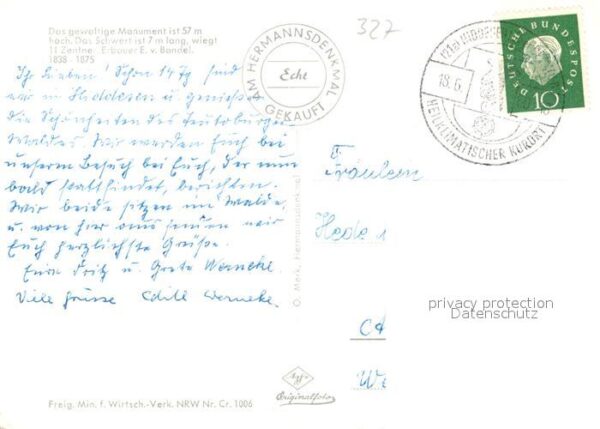 Das gewaltige Monument ist 57 m
hoch. Das Schwert ist 7 m lang, wiegt
11 Zentner. Erbauer E. v. Bandel.
1838 - 1875
327
AM HERMANNSDENKMAL
Echt
GEKAUFT
(21a) HIDDESEN
18.6.
HEILKLIMATISCHER KURORT
DEUTSCHE BUNDESPOST
10
Ihr Lieben! Schon 14 Tg sind
wir in Hiddesen u. genießen
die Schönheiten des Teutoburger
Waldes. Wir werden Euch bei
unserem Besuch bei Euch, der nun
bald stattfindet, berichten.
Wir beide sitzen im Walde
u. von hier aus senden wir
Euch herzlichste Grüße.
Eure Fritz u. Grete Werneke.
Viele Grüsse Edith Werneke.
Fräulein
O. Merk, Hermannsdenkmal
privacy protection
Datenschutz
Agfa
Originalfoto
Freig. Min. f. Wirtsch.-Verk. NRW Nr. Cr. 1006